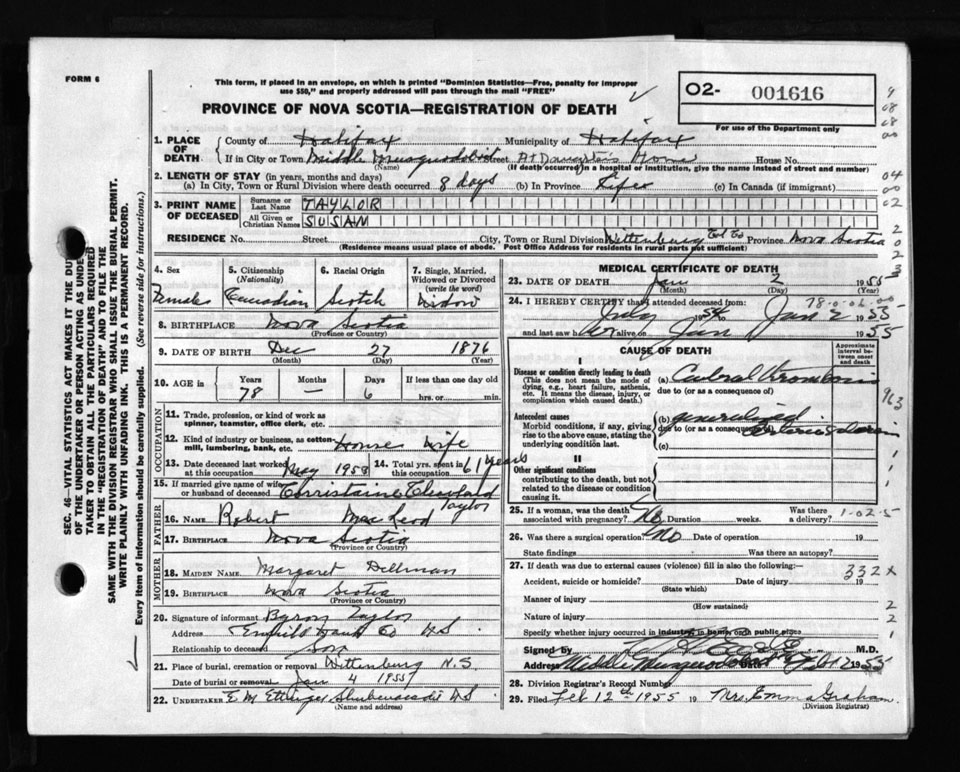 FORM 6
This form, if placed in an envelope, on which is printed "Dominion Statistics—Free, penalty for improper
use $50," and properly addressed will pass through the mail "FREE"
O2- 001616
PROVINCE OF NOVA SCOTIA—REGISTRATION OF DEATH
For use of the Department only
1. PLACE OF DEATH County of Halifax Municipality of Halifax
If in City or Town Middle Musquodoboit Street At Daughters Home House No.
(Name) (If death occurred in a hospital or institution, give the name instead of street and number)
2. LENGTH OF STAY (in years, months and days)
(a) In City, Town or Rural Division where death occurred 8 days (b) In Province Life (c) In Canada (if immigrant)
3. PRINT NAME OF DECEASED Surname or Last Name TAYLOR
All Given or Christian Names SUSAN
RESIDENCE No. Street City, Town or Rural Division Wittenburg Col Co Province Nova Scotia
(Residence means usual place of abode. Post Office Address for residents in rural parts not sufficient)
4. Sex Female
5. Citizenship (Nationality) Canadian
6. Racial Origin Scotch
7. Single, Married, Widowed or Divorced (write the word) Widow
8. BIRTHPLACE Nova Scotia
(Province or Country)
9. DATE OF BIRTH Dec 27 1876
(Month) (Day) (Year)
10. AGE in Years 78 Months — Days 6 If less than one day old hrs. or min.
OCCUPATION
11. Trade, profession, or kind of work as spinner, teamster, office clerk, etc.
12. Kind of industry or business, as cotton-mill, lumbering, bank, etc. House Wife
13. Date deceased last worked at this occupation May 1953 14. Total yrs. spent in this occupation 61 years
15. If married give name of wife or husband of deceased Taylor
FATHER
16. NAME Robert MacLeod
17. BIRTHPLACE Nova Scotia
(Province or Country)
MOTHER
18. MAIDEN NAME Margaret Dellman
19. BIRTHPLACE Nova Scotia
(Province or Country)
20. Signature of informant Byron Taylor
Address Hants Co N.S.
Relationship to deceased Son
21. Place of burial, cremation or removal Wittenburg N.S.
Date of burial or removal Jan 4 1955
22. UNDERTAKER E M Ettinger Shubenacadie N S
(Name and address)
MEDICAL CERTIFICATE OF DEATH
23. DATE OF DEATH Jan 2 1955
(Month) (Day) (Year)
24. I HEREBY CERTIFY that I attended deceased from:
July 1954 to Jan 2 1955
and last saw her alive on Jan 1955
CAUSE OF DEATH
Approximate interval between onset and death
I
Disease or condition directly leading to death
(This does not mean the mode of dying, e.g., heart failure, asthenia, etc. It means the disease, injury, or complication which caused death.)
(a) Cerebral Thrombosis
due to (or as a consequence of)
Antecedent causes
Morbid conditions, if any, giving rise to the above cause, stating the underlying condition last.
(b) generalized arteriosclerosis
due to (or as a consequence of)
(c)
II
Other significant conditions
contributing to the death, but not related to the disease or condition causing it.
25. If a woman, was the death associated with pregnancy? No Duration weeks. Was there a delivery?
1-02-5
26. Was there a surgical operation? No Date of operation 19
State findings Was there an autopsy?
27. If death was due to external causes (violence) fill in also the following:—
332 x
Accident, suicide or homicide? Date of injury 19
(State which)
Manner of injury
(How sustained)
Nature of injury
Specify whether injury occurred in industry, in home or in public place
Signed by M.D.
Address Middle Musquodoboit Feb 12 1955
28. Division Registrar's Record Number
29. Filed Feb 12th 1955 19 Mrs. Emma Graham
(Division Registrar)
SEC. 46 VITAL STATISTICS ACT MAKES IT THE DUTY
OF THE UNDERTAKER OR PERSON ACTING AS UNDER-
TAKER TO OBTAIN ALL THE PARTICULARS REQUIRED
IN THE "REGISTRATION OF DEATH" AND TO FILE THE
SAME WITH THE DIVISION REGISTRAR WHO SHALL ISSUE THE BURIAL PERMIT.
WRITE PLAINLY WITH UNFADING INK. THIS IS A PERMANENT RECORD.
Every item of information should be carefully supplied. (See reverse side for instructions.)